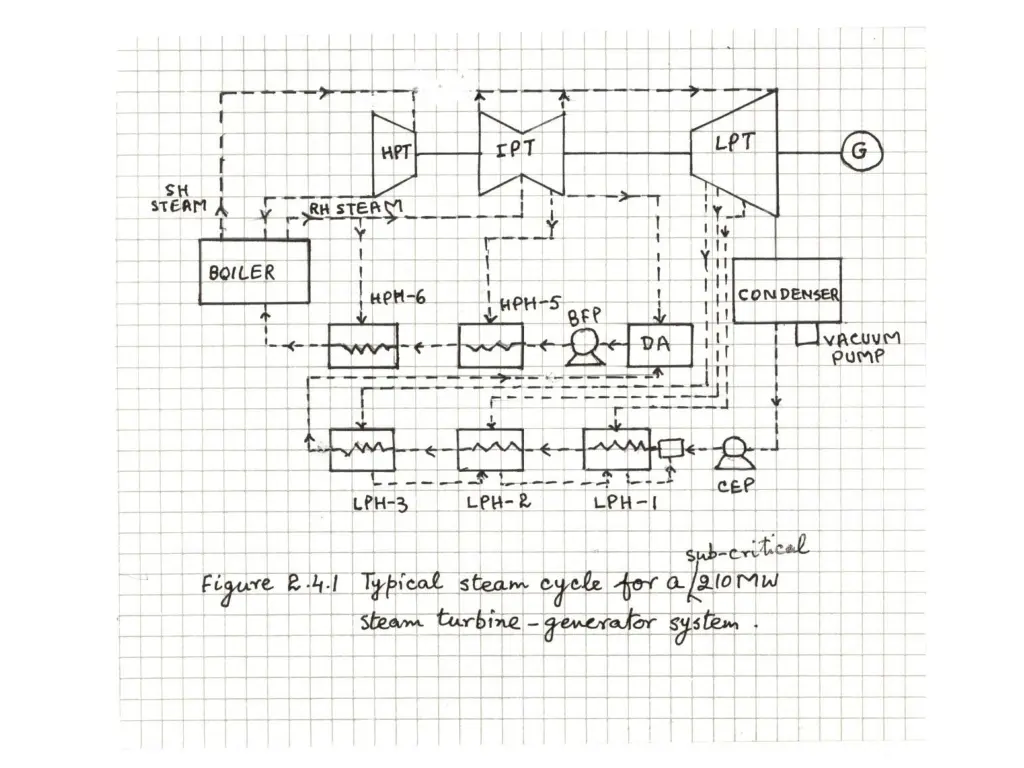 HPT
IPT
LPT
G
SH
STEAM
RH STEAM
BOILER
HPH-6
HPH-5
BFP
DA
CONDENSER
VACUUM
PUMP
LPH-3
LPH-2
LPH-1
CEP
sub-critical
Figure 2.4.1 Typical steam cycle for a 210MW
steam turbine-generator system.